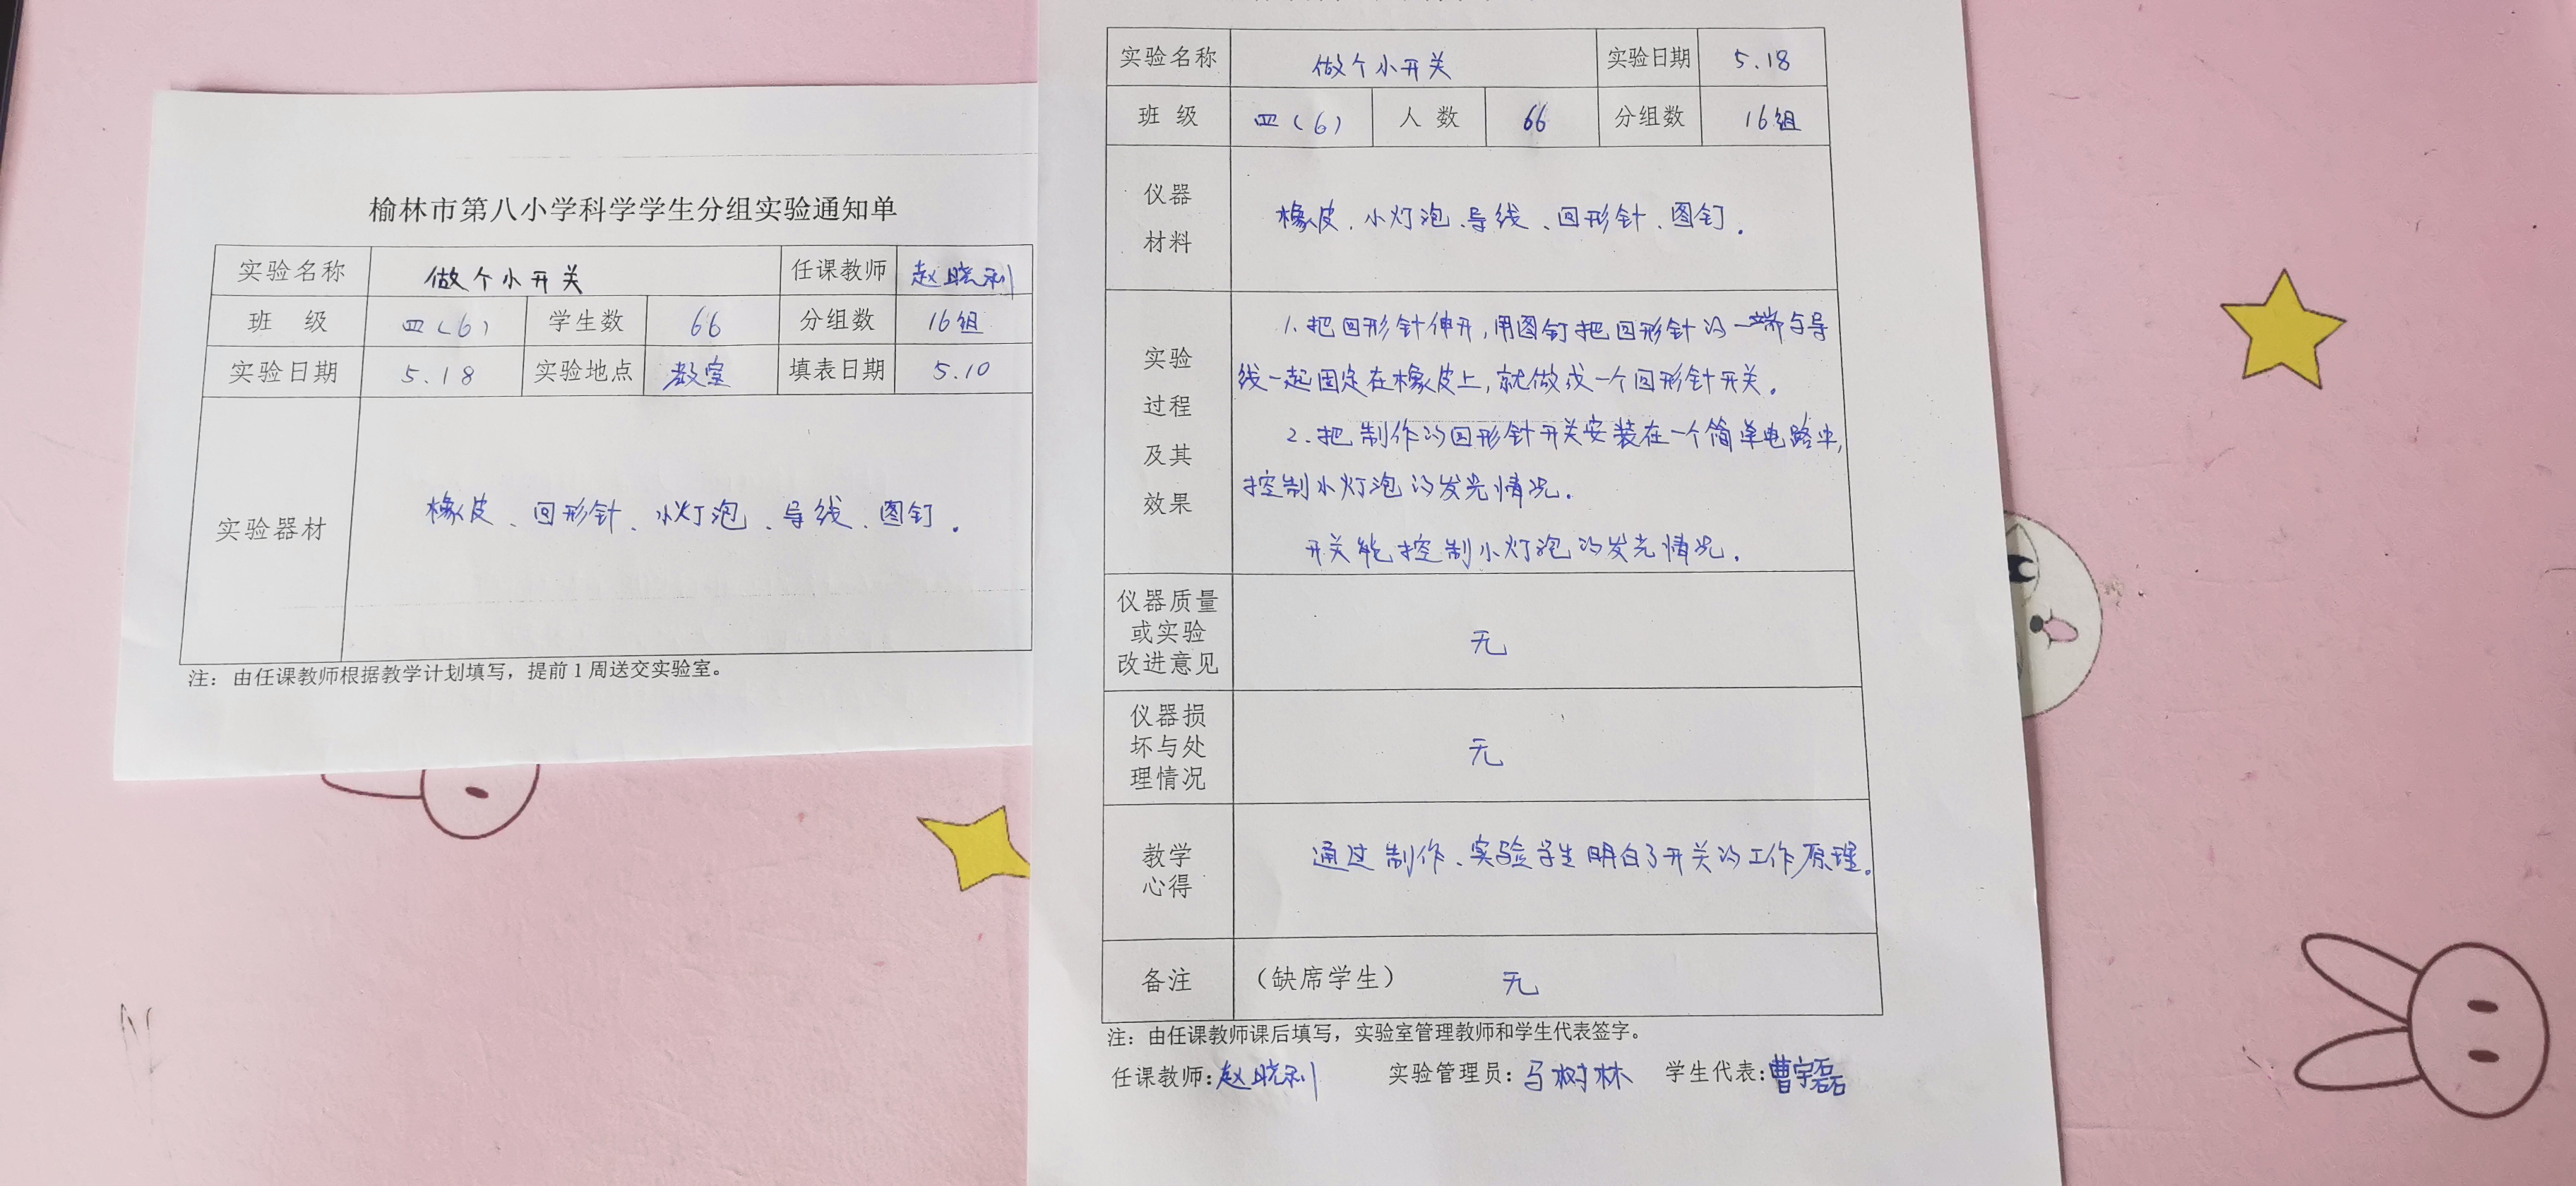 榆林市第八小学科学学生分组实验通知单
实验名称 做个小开关 任课教师 赵晓利
班 级 四(6) 学生数 66 分组数 16组
实验日期 5.18 实验地点 教室 填表日期 5.10
实验器材 橡皮、回形针、小灯泡、导线、图钉.
注：由任课教师根据教学计划填写，提前1周送交实验室。
实验名称 做个小开关 实验日期 5.18
班 级 四(6) 人 数 66 分组数 16组
仪器
材料
橡皮、小灯泡、导线、回形针、图钉.
实验
过程
及其
效果
1.把回形针伸开,用图钉把回形针的一端与导
线一起固定在橡皮上,就做成一个回形针开关。
2.把制作的回形针开关安装在一个简单电路中,
控制小灯泡的发光情况.
开关能控制小灯泡的发光情况.
仪器质量
或实验
改进意见
无
仪器损
坏与处
理情况
无
教学
心得
通过制作、实验学生明白了开关的工作原理。
备注 （缺席学生） 无
注：由任课教师课后填写，实验室管理教师和学生代表签字。
任课教师:赵晓利 实验管理员:马树林 学生代表:曹宇磊